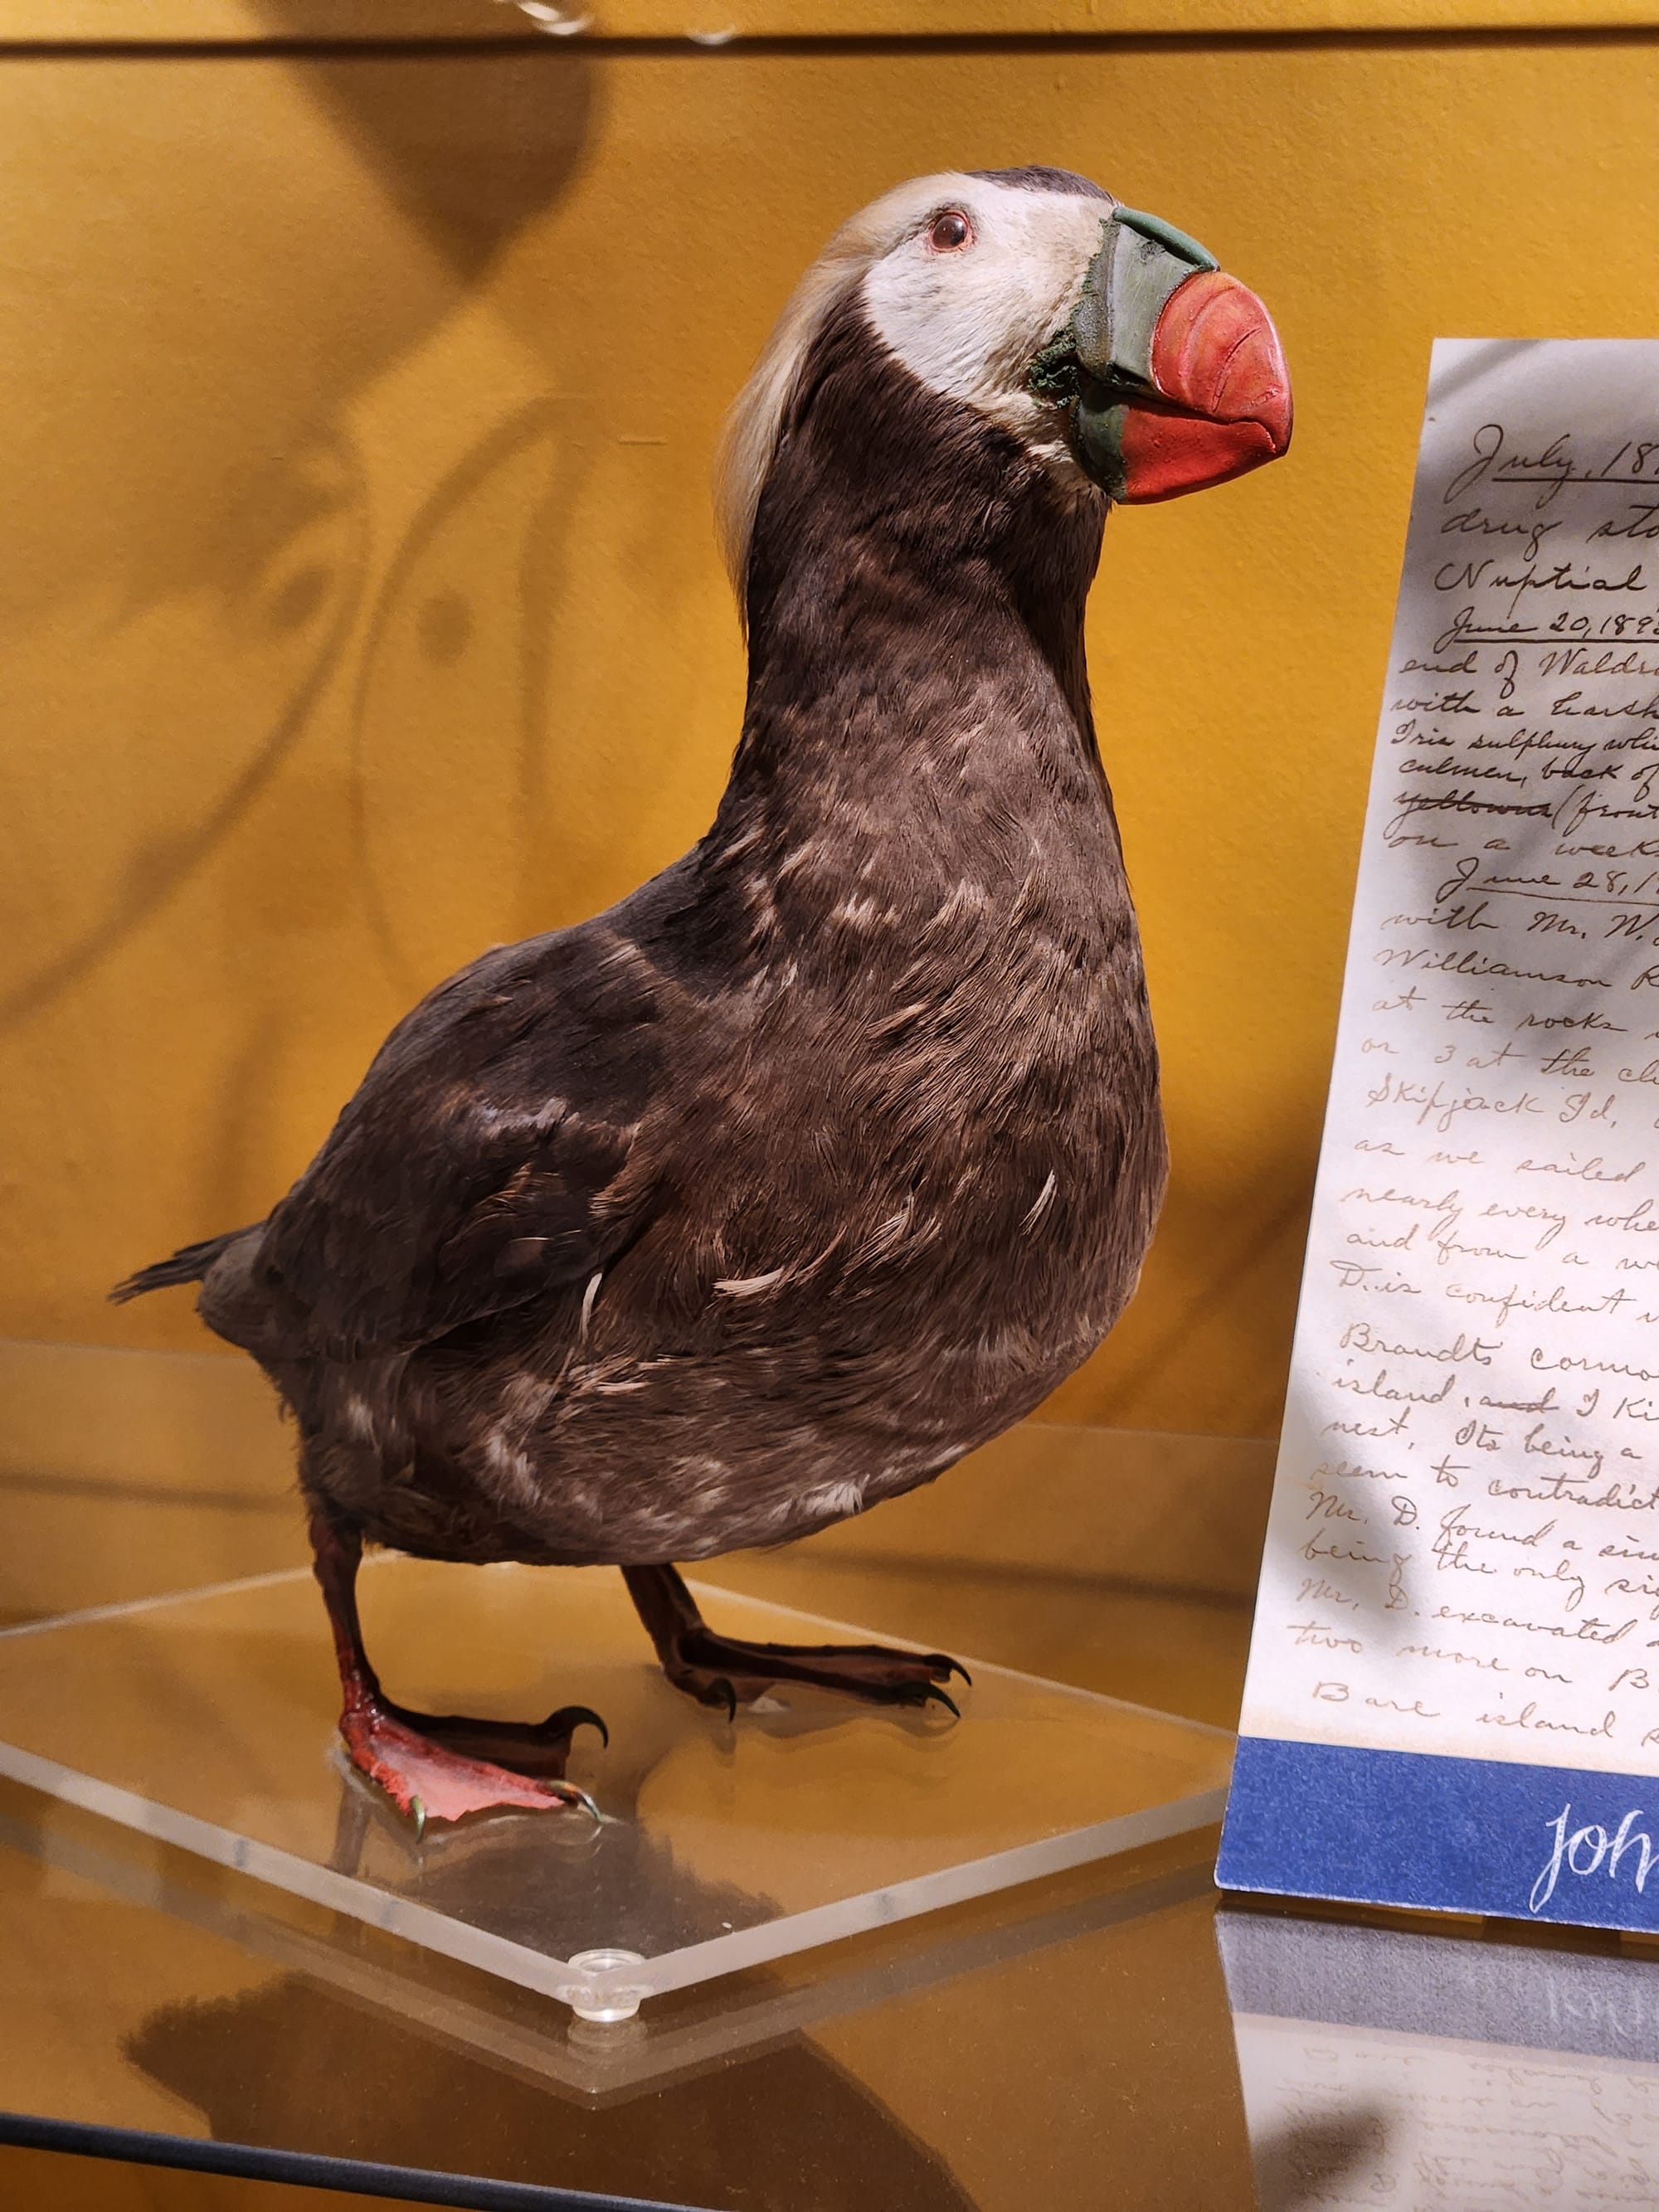 July, 18
drug sto
Nuptial
June 20, 189
end of Waldr
with a harsh
Iris sulphury whi
culmen, back of
yellowish (front
on a week
June 28, 1
with Mr. W.
Williamson R
at the rocks
or 3 at the cli
Skipjack Id,
as we sailed
nearly every whe
and from a we
D. is confident
Brandts cormo
island, and I Ki
nest. Its being a
seem to contradict
Mr. D. found a sin
being the only sig
Mr. D. excavated
two more on B
Bare island s
Joh